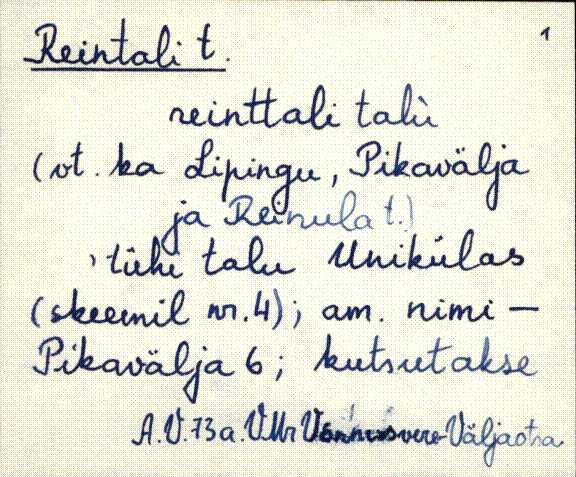 Reintali t. 1
reinttali talù
(vt. ka Lipingu, Pikavälja
ja Reinula t.)
tühi talu Unikülas
(skeemil nr. 4); am. nimi —
Pikavälja 6; kutsutakse
A.V. 73a. V.Mr Väljaotsa